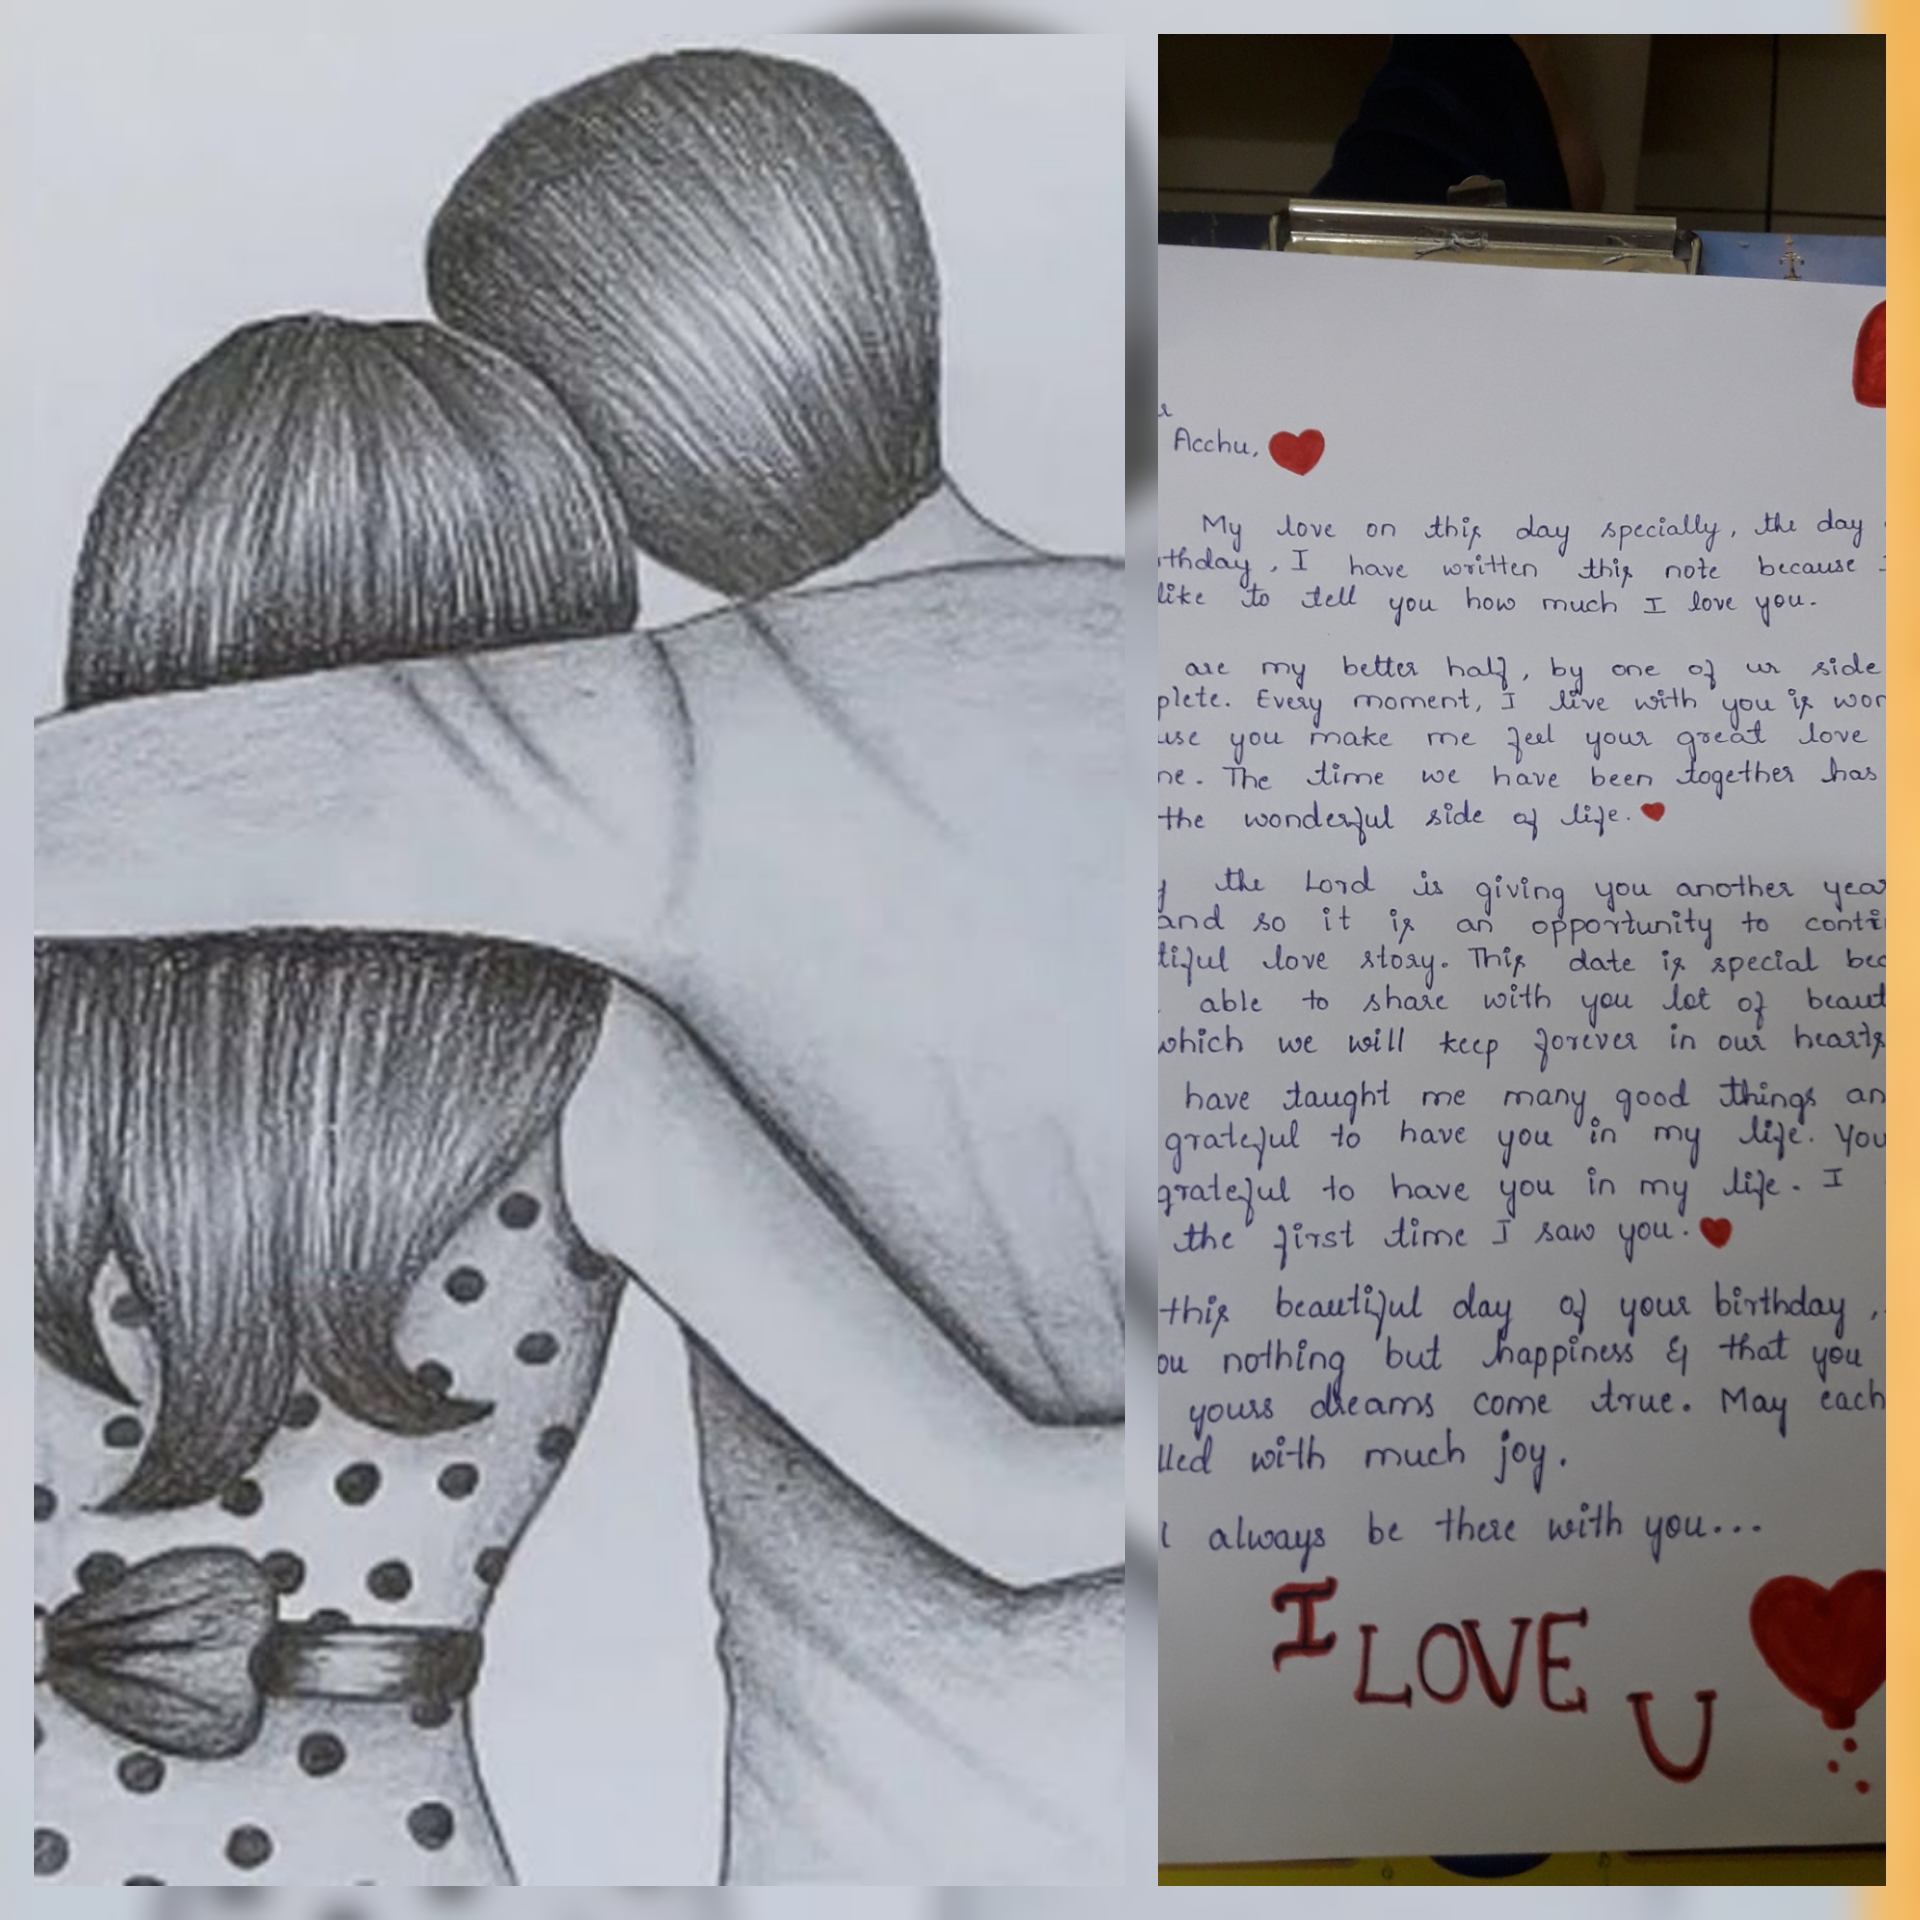 Acchu,
My love on this day specially, the day
rthday, I have written this note because I
like to tell you how much I love you.
are my better half, by one of ur side
plete. Every moment, I live with you is won
use you make me feel your great love
me. The time we have been together has
the wonderful side of life.
y the Lord is giving you another year
and so it is an opportunity to conti
tiful love story. This date is special bec
able to share with you lot of beaut
which we will keep forever in our hearts
have taught me many good things an
grateful to have you in my life. You
grateful to have you in my life. I
the first time I saw you.
this beautiful day of your birthday,
ou nothing but happiness & that you
yours dreams come true. May each
lled with much joy.
l always be there with you...
I LOVE U